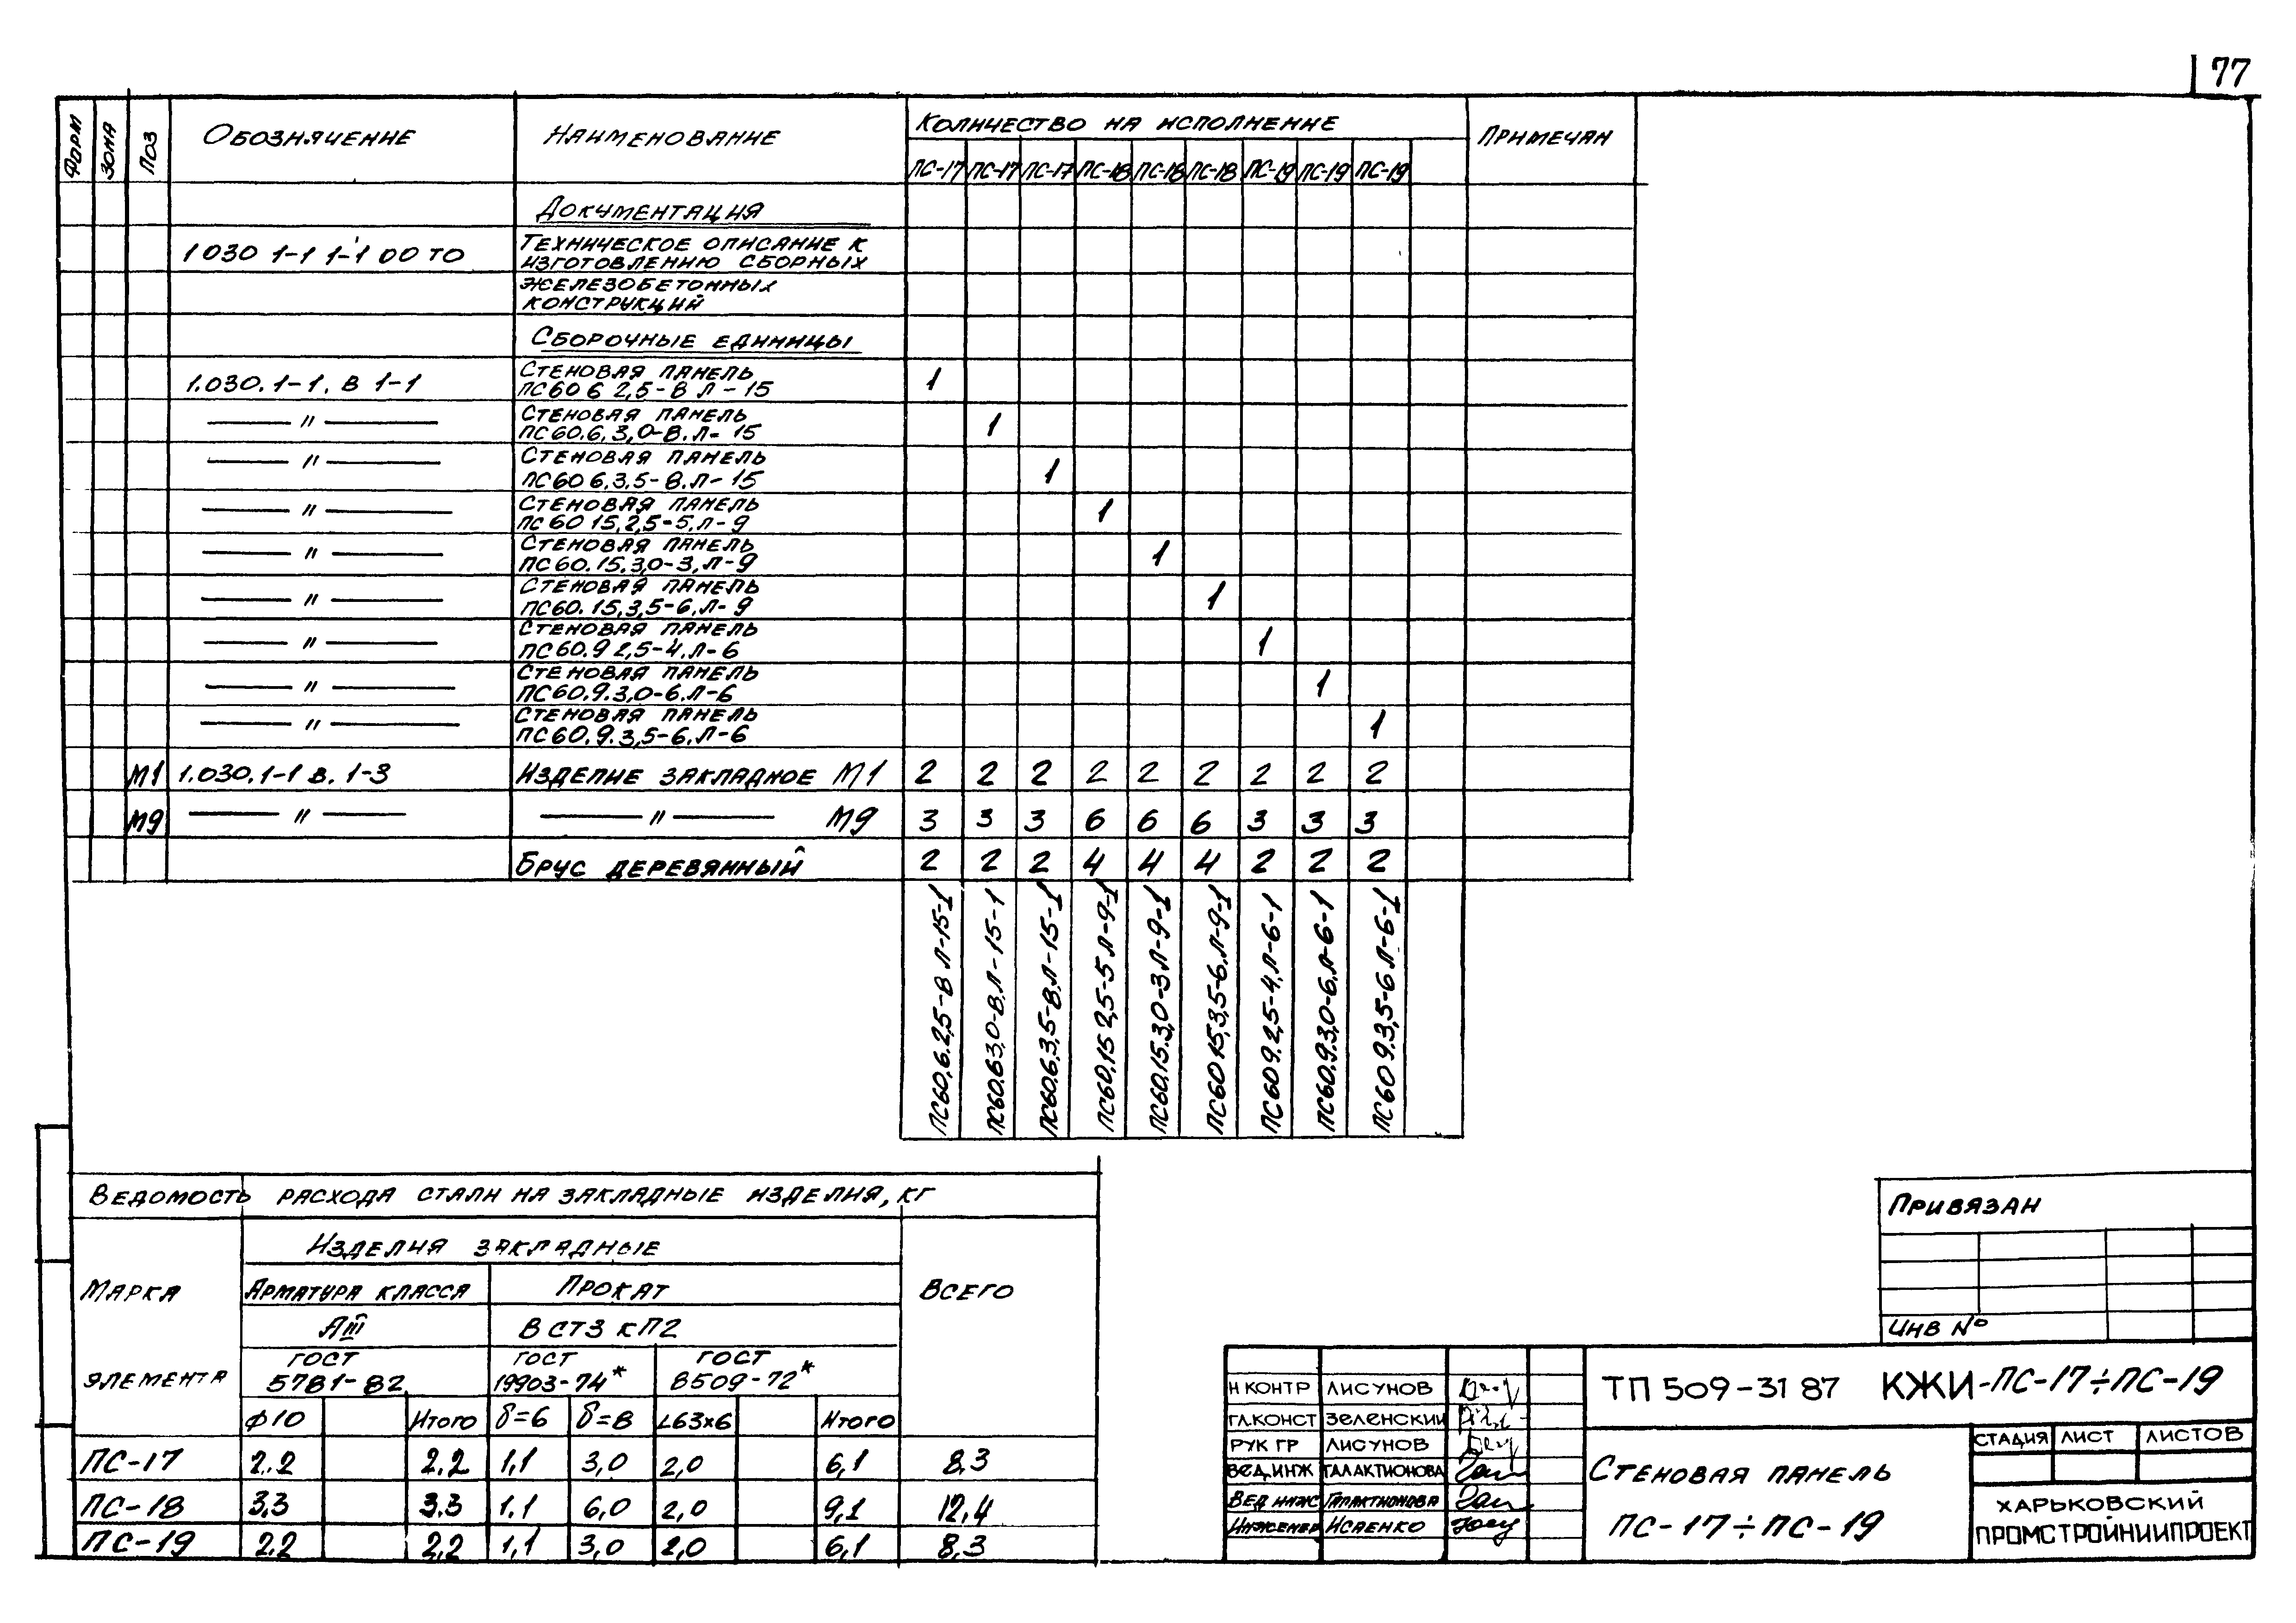 77
Форм Зона Поз Обозначение Наименование Количество на исполнение Примечан
ПС-17 ПС-17 ПС-17 ПС-18 ПС-18 ПС-18 ПС-19 ПС-19 ПС-19
Документация
1030 1-1 1-1 00 ТО Техническое описание к
изготовлению сборных
железобетонных
конструкций
Сборочные единицы
1.030.1-1. В 1-1 Стеновая панель
ПС60 6 2,5-8 Л-15 1
— " — Стеновая панель
ПС60.6.3,0-8.Л-15 1
— " — Стеновая панель
ПС60 6.3.5-8.Л-15 1
— " — Стеновая панель
ПС60 15,2,5-5,Л-9 1
— " — Стеновая панель
ПС60.15.3,0-3,Л-9 1
— " — Стеновая панель
ПС60.15,3,5-6,Л-9 1
— " — Стеновая панель
ПС60.9 2,5-4.Л-6 1
— " — Стеновая панель
ПС60.9.3,0-6.Л-6 1
— " — Стеновая панель
ПС60.9.3,5-6.Л-6 1
М1 1.030.1-1 В. 1-3 Изделие закладное М1 2 2 2 2 2 2 2 2 2
М9 — " — — " — М9 3 3 3 6 6 6 3 3 3
Брус деревянный 2 2 2 4 4 4 2 2 2
ПС60.6.2,5-8 Л-15-1
ПС60.6 3,0-8.Л-15-1
ПС60.6.3,5-8,Л-15-1
ПС60,15 2,5-5 Л-9-1
ПС60.15.3,0-3 Л-9-1
ПС60 15,3,5-6.Л-9-1
ПС60 9.2,5-4,Л-6-1
ПС60.9.3,0-6.Л-6-1
ПС60 9.3,5-6 Л-6-1
Ведомость расхода стали на закладные изделия, кг
Марка элемента Изделия закладные Всего
Арматура класса Прокат
АIII В Ст3 кп2
ГОСТ 5781-82 ГОСТ 19903-74* ГОСТ 8509-72*
Ф10 Итого δ=6 δ=8 L63х6 Итого
ПС-17 2,2 2,2 1,1 3,0 2,0 6,1 8,3
ПС-18 3,3 3,3 1,1 6,0 2,0 9,1 12,4
ПС-19 2,2 2,2 1,1 3,0 2,0 6,1 8,3
Привязан
Инв №
Н контр Лисунов
Гл.конст Зеленский
Рук гр Лисунов
Вед.инж Галактионова
Вед инж Галактионова
Инженер Исаенко
ТП 509-31 87 КЖИ-ПС-17÷ПС-19
Стеновая панель
ПС-17÷ПС-19
Стадия Лист Листов
Харьковский
Промстройниипроект